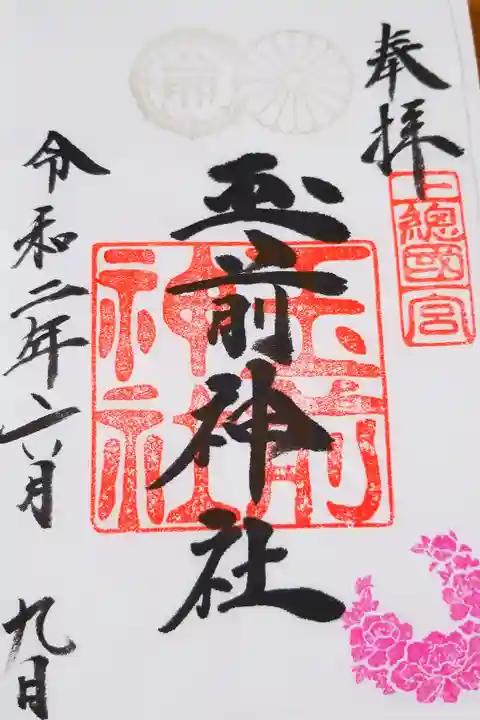 奉拝
上總國一宮
玉前神社
玉前神社
令和二年六月九日